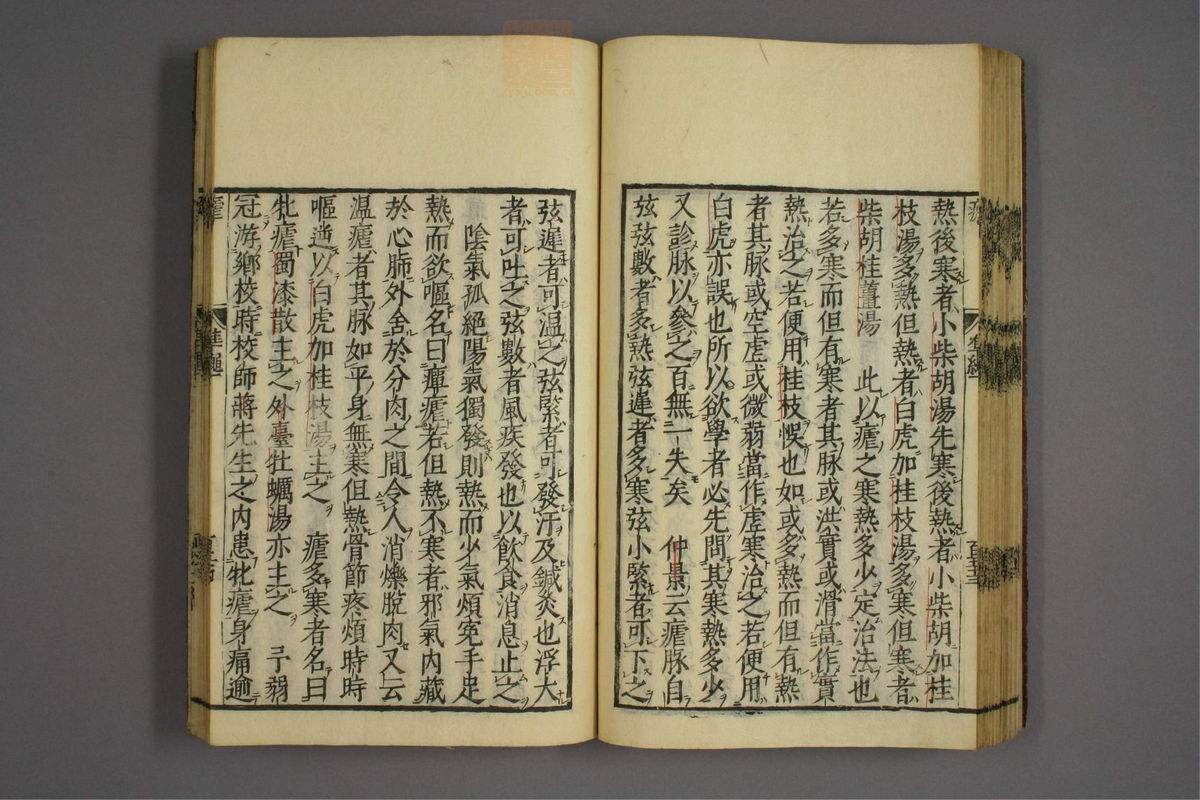 熱後寒者小柴胡湯先寒後熱者小柴胡加桂
枝湯多熱但熱者白虎加桂枝湯多寒但寒者
柴胡桂薑湯　此以瘧之寒熱多少定治法也
若多寒而但有寒者其脉或洪實或滑當作實
熱治之若便用桂枝悞也如或多熱而但有熱
者其脉或空虚或微弱當作虚寒治之若便用
白虎亦誤也所以欲學者必先問其寒熱多少
又診脉以參之百無一失矣　仲景云瘧脉自
弦弦數者多熱弦遲者多寒弦小緊者可下之
弦遲者可温之弦緊者可發汗及鍼灸也浮大
者可吐之弦數者風疾發也以飲食消息止之
陰氣孤絶陽氣獨發則熱而少氣煩寃手足
熱而欲嘔名曰癉瘧若但熱不寒者邪氣内藏
於心肺外舍於分肉之間令人消爍脫肉又云
温瘧者其脉如平身無寒但熱骨節疼煩時時
嘔逆以白虎加桂枝湯主之　瘧多寒者名曰
牝瘧蜀漆散主之外臺牡蠣湯亦主之　予弱
冠游鄉校時校師蔣先生之内患牝瘧身痛逾
瘧
準繩